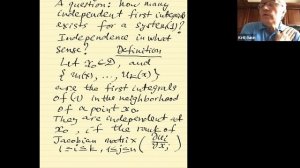 A question: how many
independent first integrals
exists for a system (1)?
Independence in what
sense? Definition
Let x₀ ∈ D, and
{ u₁(x), ..., uₖ(x) }
are the first integrals
of (1) in the neighborhood
of a point x₀
They are independent at
x₀, if the rank of
Jacobian matrix (∂uᵢ/∂xⱼ)
1≤i≤k, 1≤j≤n